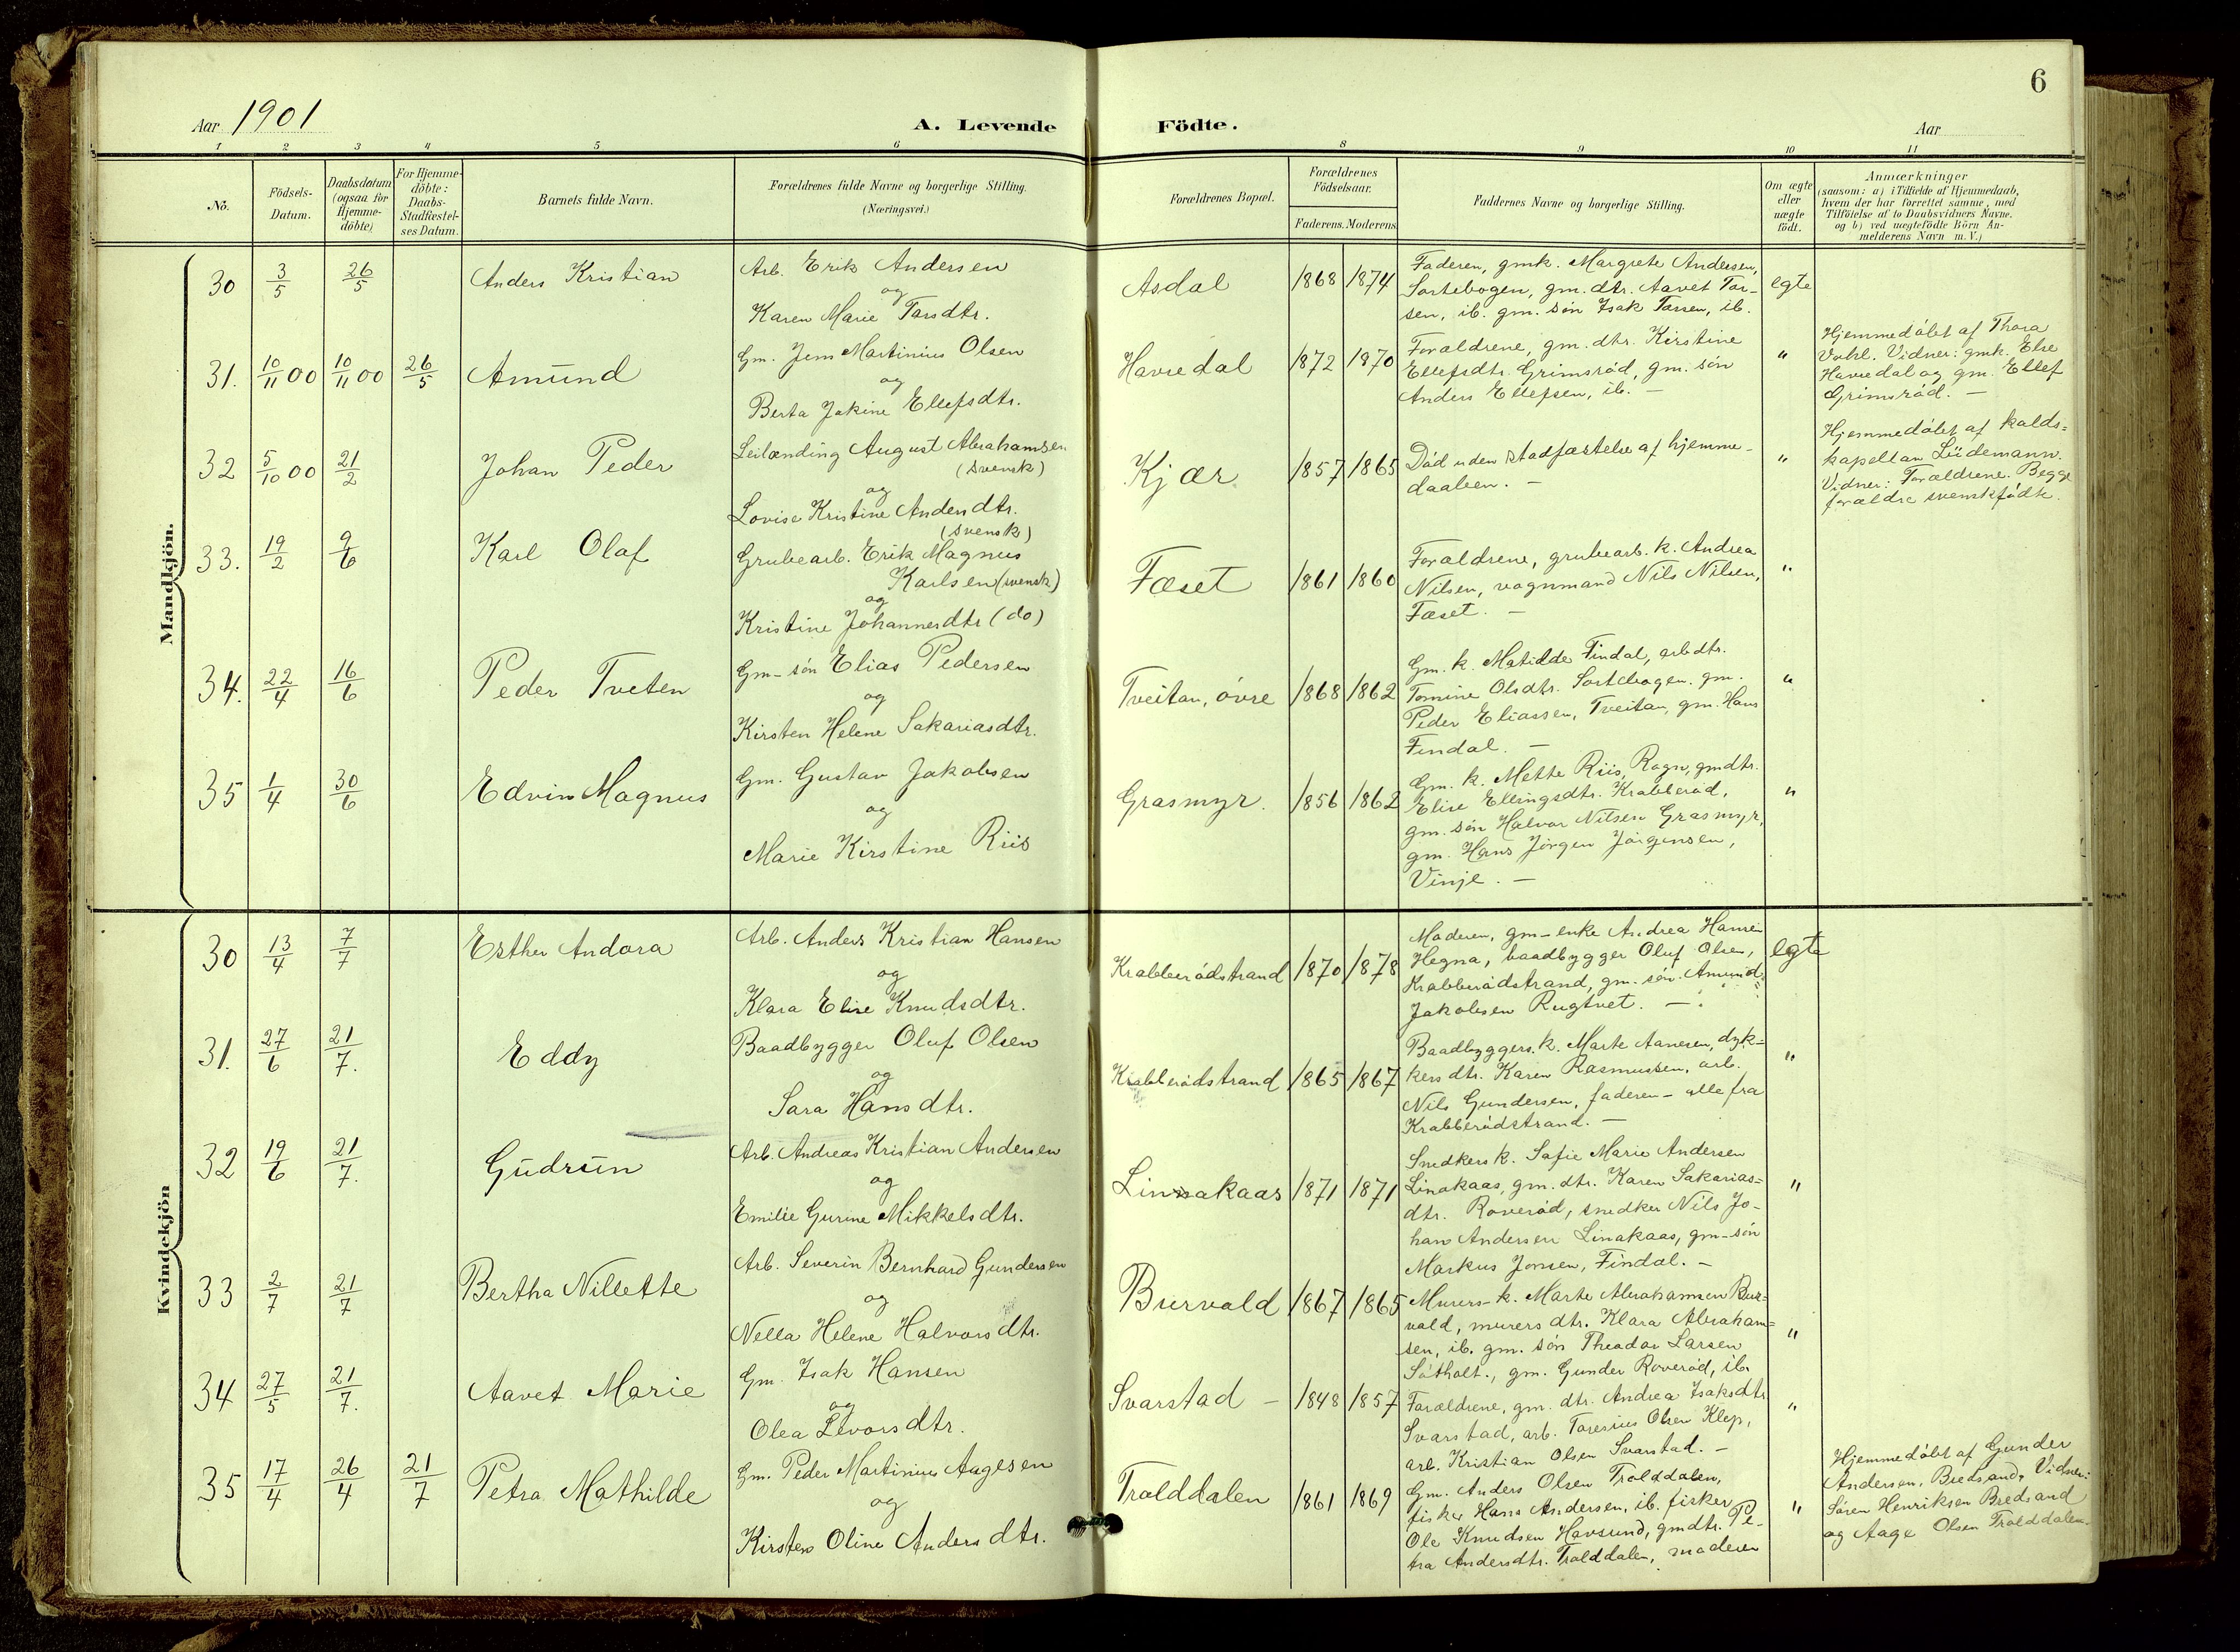 6
Aar 1901
A. Levende
Födte.
Aar
1 2 3 4 5 6 8 9 10 11
No.
Födsels-
Datum.
Daabsdatum
(ogsaa for
Hjemme-
döbte)
For Hjemme-
döbte:
Daabs-
Stadfæstel-
ses Datum.
Barnets fulde Navn.
Forældrenes fulde Navne og borgerlige Stilling.
(Næringsvei.)
Forældrenes Bopæl.
Forældrenes
Födselsaar.
Faderens. Moderens.
Faddernes Navne og borgerlige Stilling.
Om ægte
eller
uægte
födt.
Anmærkninger
(saasom: a) i Tilfælde af Hjemmedaab,
hvem der har forrettet samme, med
Tilföielse af to Daabsvidners Navne.
og b) ved uægtefödte Börn An-
melderens Navn m. V.)
Mandkjön.
30 3/5 26/5 Anders Kristian
Arb. Erik Andersen
og
Karen Marie Tarsdtr.
Asdal 1868 1874
Faderen, gmk. Margrete Andersen,
Sortebogen, gm. dtr. Aavet Tar-
sen, ib. gm. søn Isak Tarsen, ib.
egte
31. 10/11 00 10/11 00 26/5 Amund
Gm. Jens Martinius Olsen
og
Berta Jakine Ellefsdtr.
Havsedal 1872 1870
Forældrene, gm. dtr. Kirstine
Ellefsdtr. Grimsrød, gm. søn
Anders Ellefsen, ib. —
"
Hjemmedøbt af Thora
Vahl. Vidner: gmk. Else
Havsedal og gm. Ellef
Grimsrød. —
32 5/10 00 21/2 Johan Peder
Leilænding August Abrahamsen
(svensk)
og
Lovise Kristine Andersdtr.
(svensk)
Kjær 1857 1865
Død uden stadfæstelse af hjemme-
daaben. —
"
Hjemmedøbt af kalds-
kapellan Lüdemann.
Vidner: Forældrene. Begge
forældre svenskfødte.
33. 19/2 9/6 Karl Olaf
Grubearb. Erik Magnus
Karlsen (svensk)
og
Kristine Johannesdtr (do)
Fæset 1861 1860
Forældrene, grubearb. k. Andrea
Nilsen, vognmand Nils Nilsen,
Fæset. —
"
34. 22/4 16/6 Peder Tveten
Gm-søn Elias Pedersen
og
Kirsten Helene Sakariasdtr.
Tveitan, øvre 1868 1862
Gm. k. Matilde Findal, arbdtr.
Tomine Olsdtr. Sortebogen. gm.
Peder Eliassen, Tveitan, gm. Hans
Findal. —
"
35 1/4 30/6 Edvin Magnus
Gm. Gustav Jakobsen
og
Marie Kirstine Riis
Grasmyr. 1856 1862
Gm. k. Mette Riis, Rogn, gmdtr.
Elise Ellingsdtr. Krabberød,
gm. søn Halvor Nilsen Grasmyr,
gm. Hans Jørgen Jørgensen,
Vinje. —
"
Kvindekjön
30 13/4 7/7 Esther Andora
Arb. Anders Kristian Hansen
og
Klara Elise Knudsdtr.
Krabberødstrand 1870 1878
Moderen, gm-enke Andrea Hansen
Hegna, baadbygger Oluf Olsen,
Krabberødstrand, gm. søn Amund
Jakobsen Rugtvet. —
egte
31. 27/6 21/7. Eddy
Baadbygger Oluf Olsen
og
Sara Hansdtr.
Krabberødstrand 1865 1867
Baadbyggers. k. Marte Aanesen, dyk-
kers dtr. Karen Rasmussen, arb.
Nils Gundersen, faderen - alle fra
Krabberødstrand. —
"
32 19/6 21/7. Gudrun
Arb. Andreas Kristian Andersen
og
Emilie Gurine Mikkelsdtr.
Linnakaas 1871 1871
Snedkers k. Sofie Marie Andersen
Linakaas, gm. dtr. Karen Sakarias-
dtr. Roverød, snedker Nils Jo-
han Andersen Linakaas, gm-søn
Markus Jonsen, Findal. —
"
33 2/7 21/7 Bertha Nillette
Arb. Severin Bernhard Gundersen
og
Nella Helene Halvorsdtr.
Buervald 1867 1865
Murers-k. Marte Abrahamsen Buer-
vald, murers dtr. Klara Abraham-
sen, ib. gm. søn Theodor Larsen
Søtholt., gm. Gunder Roverød, ib.
"
34 27/5 21/7. Aavet Marie
Gm. Isak Hansen
og
Olea Levorsdtr.
Svarstad — 1848 1857
Forældrene, gm. dtr. Andrea Isaksdtr
Svarstad, arb. Toresius Olsen Klep,
arb. Kristian Olsen Svarstad. —
"
35 17/4 26/4 21/7 Petra Mathilde
Gm. Peder Martinius Aagesen
og
Kirsten Oline Andersdtr.
Trolddalen 1861 1869
Gm. Anders Olsen Trolddalen,
fisker Hans Andersen, ib. fisker
Ole Knudsen Havsund, gmdtr. Pe-
tra Andersdtr. Trolddalen, moderen
"
Hjemmedøbt af Gunder
Andersen, Bredsand. Vidner:
Søren Henriksen Bredsand
og Aage Olsen Trolddalen.